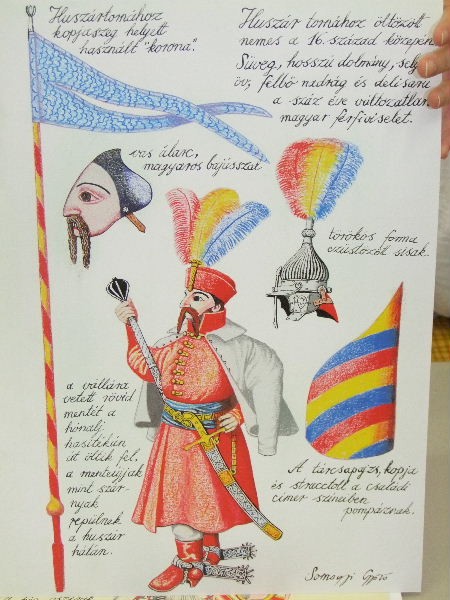 Huszártornához
kopjaszeg helyett
használt "korona".
Huszár tornához öltözött
nemes a 16. század közepén.
Süveg, hosszú dolmány, sely
öv, felső nadrág és deli saru
a száz éve változatlan
magyar férfiviselet.
vas álarc,
magyaros bajússzal
törökös forma
ezüstözött sisak.
a vállára
vetett rövid
mentét a
hónalj
hasítékán
át öltik fel,
a menteujjak
mint szár-
nyak
repülnek
a huszár
hátán.
A tárcsapajzs, kopja
és straccioll a családi
címer színeiben
pompáznak.
Somogyi Győző